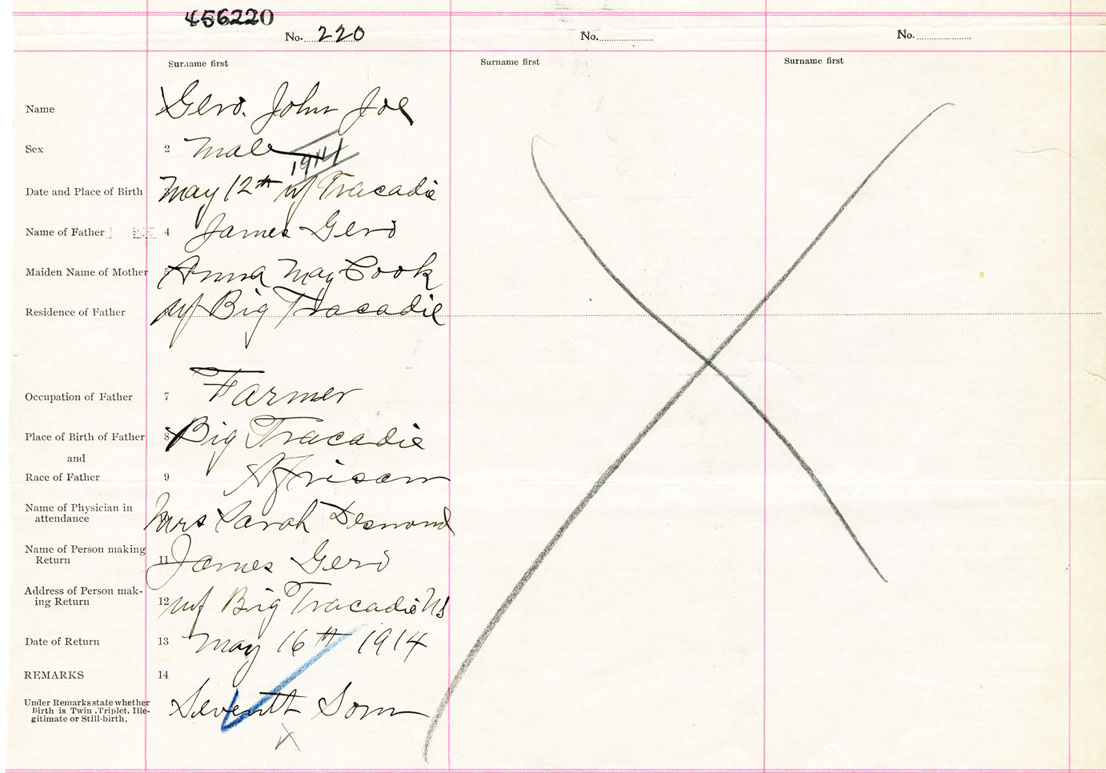 456220
No. 220 No. No.
Surname first Surname first Surname first
Name Gero. John Joe
Sex 2 Male 1914
Date and Place of Birth May 12th Tracadie
Name of Father 4 James Gero
Maiden Name of Mother 5 Anna May Cook
Residence of Father Big Tracadie
Occupation of Father 7 Farmer
Place of Birth of Father 8 Big Tracadie
and
Race of Father 9 African
Name of Physician in
attendance Mrs Sarah Desmond
Name of Person making
Return 11 James Gero
Address of Person mak-
ing Return 12 Big Tracadie NS
Date of Return 13 May 16th 1914
REMARKS 14
Under Remarks state whether
Birth is Twin, Triplet, Ille-
gitimate or Still-birth. Seventh Son
X